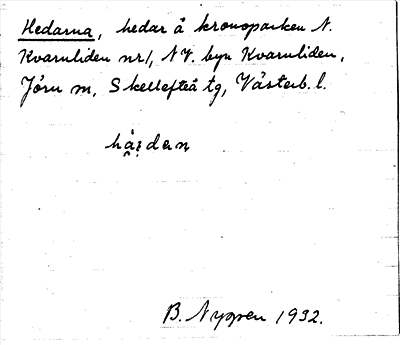 Hedarna, hedar å kronoparken N.
Kvarnliden nr 1, NV. byn Kvarnliden,
Jörn sn, Skellefteå tg, Västerb. l.
B. Nygren 1932.